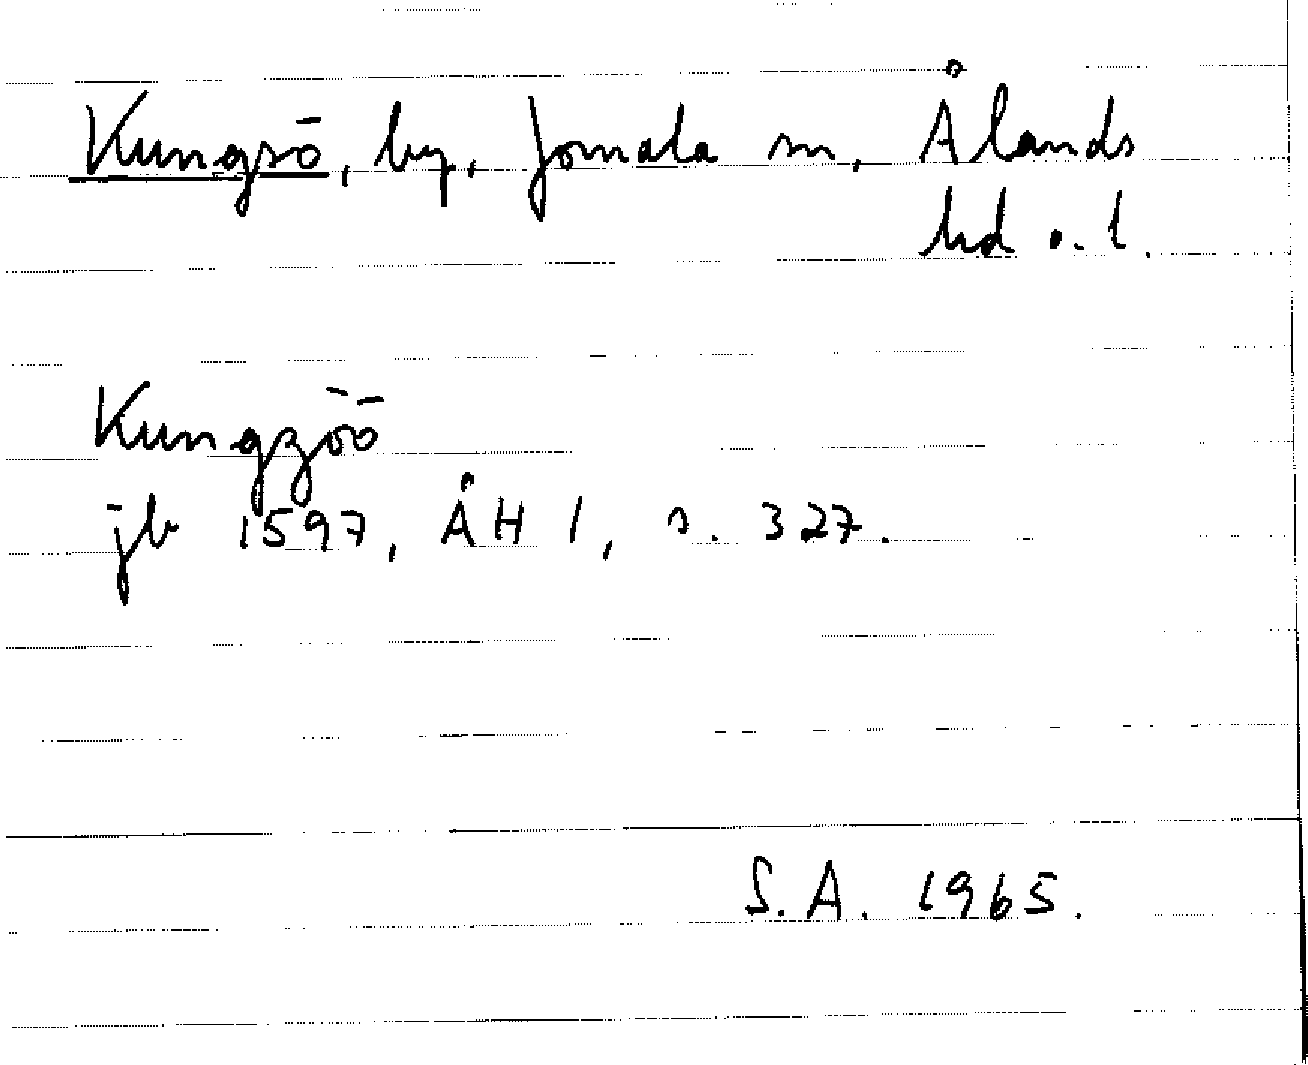 Kungsö, by, Jomala sn, Ålands
hd o. l.
Kungzöö
jb 1597, ÅH 1, s. 327.
S.A. 1965.